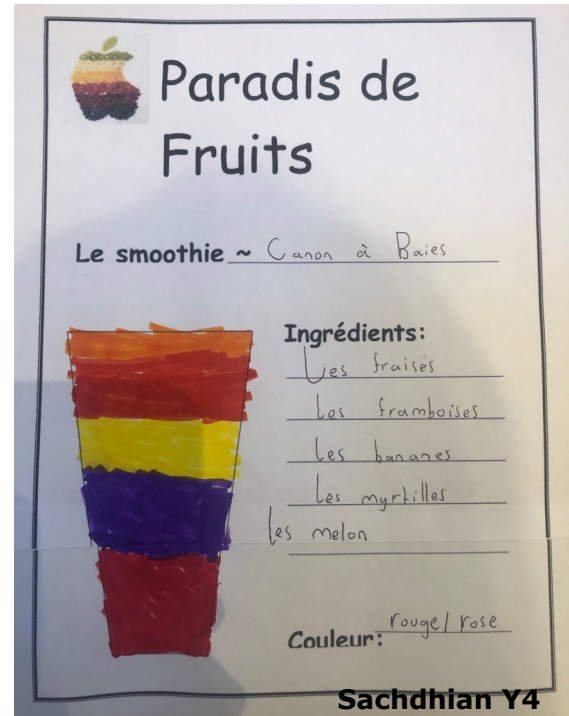 Paradis de
Fruits
Le smoothie ~ Canon à Baies
Ingrédients:
Les fraises
Les framboises
Les bananes
Les myrtilles
les melon
Couleur: rouge/rose
Sachdhian Y4